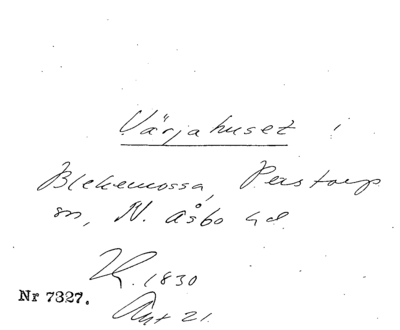 Värjahuset i
Blekemossa, Perstorp
sn, N. Åsbo hd
K. 1830
Nr 7327.
Ant 21.